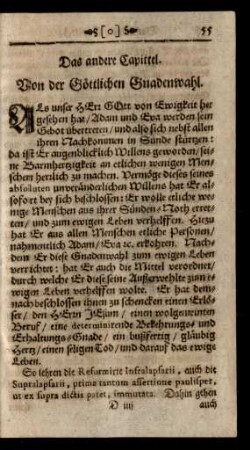 [o] 55
Das andere Capittel.
Von der Göttlichen Gnadenwahl.
ALs unser HErr GOtt von Ewigkeit her
gesehen hat / Adam und Eva werden sein
Gebot übertreten / und also sich nebst allen
ihren Nachkommen in Sünde stürtzen:
da ist Er augenblicklich Willens geworden / sei-
ne Barmhertzigkeit an etlichen wenigen Men-
schen herrlich zu machen. Vermöge dieses seines
absoluten unveränderlichen Willens hat Er al-
sofort bey sich beschlossen: Er wolle etliche we-
nige Menschen aus ihrer Sünden-Noth erret-
ten / und zum ewigen Leben verhelffen. Hiezu
hat Er aus allen Menschen etliche Personen /
nahmentlich Adam / Eva ꝛc. erkohren. Nach-
dem Er diese Gnadenwahl zum ewigen Leben
verrichtet: hat Er auch die Mittel verordnet /
durch welche Er diese seine Außerwehlte zum e-
wigen Leben verhelffen wolte. Er hat dem-
nach beschlossen ihnen zu schencken einen Erlö-
ser / den HErrn JEsum / einen wolgemeinten
Beruf / eine determinirende Bekehrungs- und
Erhaltungs-Gnade / ein bußfertig / gläubig
Hertz / einen seligen Tod / und darauf das ewige
Leben.
So lehren die Reformirte Infralapsarii, auch die
Supralapsarii, prima tantum assertione paulisper,
ut ex supra dictis patet, immutata. Dahin gehen
D iiij auch